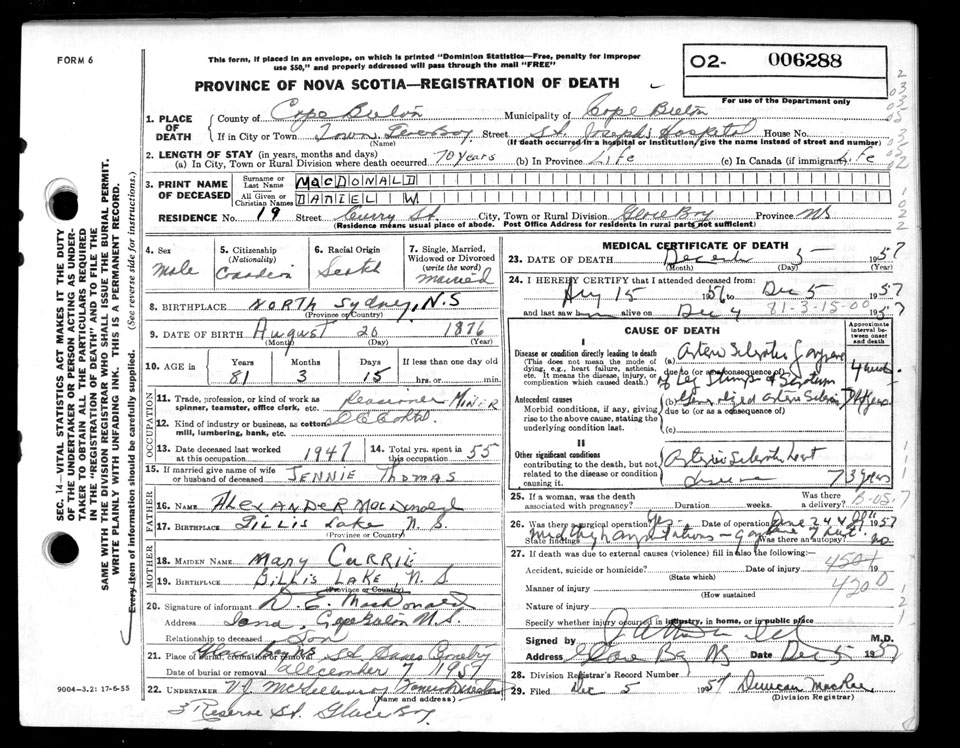 FORM 6
This form, if placed in an envelope, on which is printed "Dominion Statistics—Free, penalty for improper
use $50," and properly addressed will pass through the mail "FREE"
PROVINCE OF NOVA SCOTIA—REGISTRATION OF DEATH
O2- 006288
For use of the Department only
1. PLACE OF DEATH
County of Cape Breton Municipality of Cape Breton
If in City or Town Town Glace Bay Street St. Joseph's Hospital House No.
(Name) (If death occurred in a hospital or institution, give the name instead of street and number)
2. LENGTH OF STAY (in years, months and days)
(a) In City, Town or Rural Division where death occurred 70 years (b) In Province Life (c) In Canada (if immigrant) Life
3. PRINT NAME OF DECEASED
Surname or Last Name MACDONALD
All Given or Christian Names DANIEL W
RESIDENCE No. 19 Street Curry St. City, Town or Rural Division Glace Bay Province NS
(Residence means usual place of abode. Post Office Address for residents in rural parts not sufficient)
4. Sex Male
5. Citizenship (Nationality) Canadian
6. Racial Origin Scotch
7. Single, Married, Widowed or Divorced (write the word) Married
8. BIRTHPLACE North Sydney, N.S
(Province or Country)
9. DATE OF BIRTH August 20 1876
(Month) (Day) (Year)
10. AGE in Years Months Days If less than one day old
81 3 15 hrs. or min.
OCCUPATION
11. Trade, profession, or kind of work as spinner, teamster, office clerk, etc. Pensioner MINER
12. Kind of industry or business, as cotton mill, lumbering, bank, etc.
13. Date deceased last worked at this occupation 1947
14. Total yrs. spent in this occupation 55
15. If married give name of wife or husband of deceased JENNIE Thomas
FATHER
16. NAME ALEXANDER MacDonald
17. BIRTHPLACE Gillis Lake N.S.
(Province or Country)
MOTHER
18. MAIDEN NAME Mary CURRIE
19. BIRTHPLACE Gillis LAKE, N.S
(Province or Country)
20. Signature of informant D. E. MacDonald
Address Iona, Cape Breton N.S.
Relationship to deceased Son
21. Place of burial, cremation or removal Glace Bay NS
Date of burial or removal December 7 1957
22. UNDERTAKER V.J. Funeral Director
(Name and address)
3 Reserve St. Glace Bay.
9004—3.2: 17-6-55
SEC. 14—VITAL STATISTICS ACT MAKES IT THE DUTY
OF THE UNDERTAKER OR PERSON ACTING AS UNDER-
TAKER TO OBTAIN ALL THE PARTICULARS REQUIRED
IN THE "REGISTRATION OF DEATH" AND TO FILE THE
SAME WITH THE DIVISION REGISTRAR WHO SHALL ISSUE THE BURIAL PERMIT.
WRITE PLAINLY WITH UNFADING INK. THIS IS A PERMANENT RECORD.
Every item of information should be carefully supplied. (See reverse side for instructions.)
MEDICAL CERTIFICATE OF DEATH
23. DATE OF DEATH December 5 1957
(Month) (Day) (Year)
24. I HEREBY CERTIFY that I attended deceased from:
Aug 15 1956 to Dec 5 1957
and last saw him alive on Dec 4 1957
81-3-15-00
CAUSE OF DEATH
Approximate interval between onset and death
I
Disease or condition directly leading to death
(This does not mean the mode of dying, e.g., heart failure, asthenia, etc. It means the disease, injury, or complication which caused death.)
(a) Arterio Sclerotic Gangrene
due to (or as a consequence of)
of Leg Stumps & Scrotum
4 weeks
Antecedent causes
Morbid conditions, if any, giving rise to the above cause, stating the underlying condition last.
(b) Generalized Arterio Sclerosis
due to (or as a consequence of)
(c)
II
Other significant conditions
contributing to the death, but not related to the disease or condition causing it.
Arterio Sclerotic heart
disease
3 years
25. If a woman, was the death associated with pregnancy? Duration weeks. Was there a delivery?
26. Was there a surgical operation? Yes Date of operation June 1957
State findings midthigh amputations — gangrene of feet Was there an autopsy? no
27. If death was due to external causes (violence) fill in also the following:
Accident, suicide or homicide? Date of injury 19
(State which)
4501
Manner of injury
(How sustained)
4200
Nature of injury
Specify whether injury occurred in industry, in home, or in public place
Signed by M.D.
Address Glace Bay NS Date Dec 5 1957
28. Division Registrar's Record Number
29. Filed Dec 5 1957 Duncan MacRae
(Division Registrar)